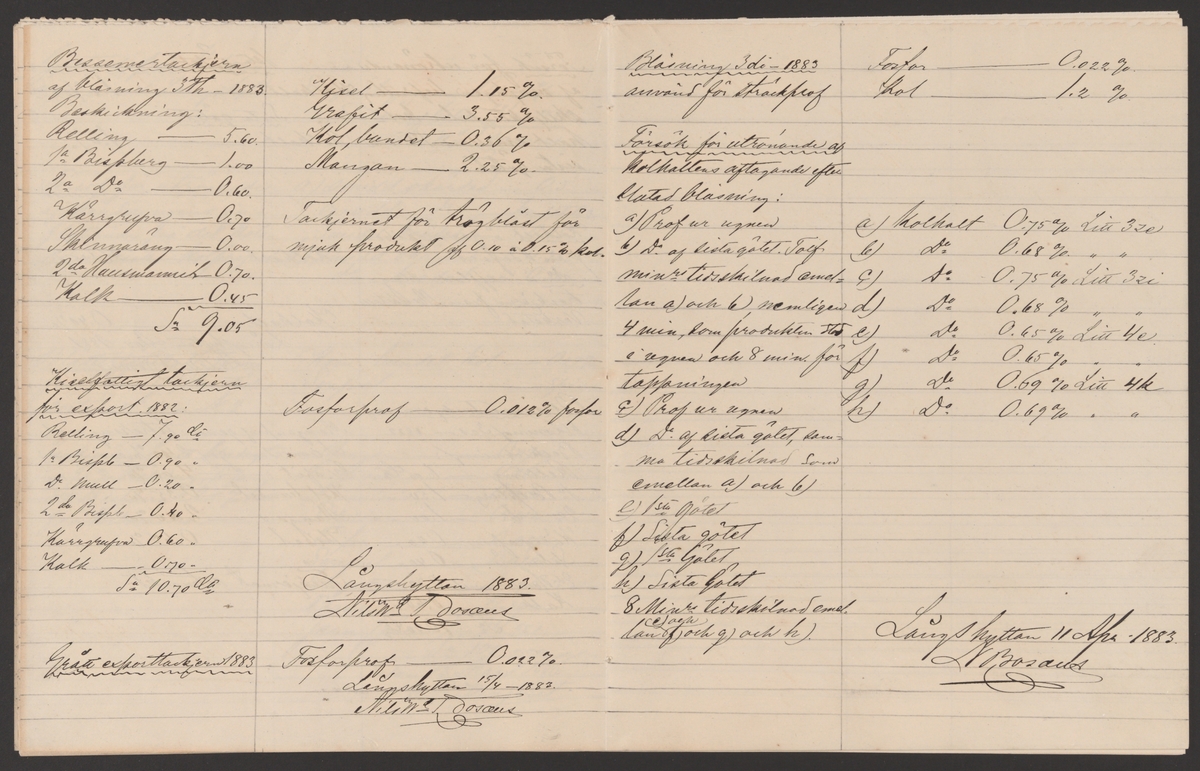 Bessemertackjern
af blåsning 3th – 1883.
Beskickning:
Relling — 5.60.
1a Bispberg — 1.00
2a Do — 0.60.
Kärrgrufva — 0.70
0.00.
2da Hausmannit 0.70.
Kalk — 0.45
Sa 9.05
Kisel — 1.15 %.
Grafit — 3.55 %
Kol, bundet — 0.36 %
Mangan — 2.25 %.
Tackjernet för högblåst för
mjuk produkt af 0.10 à 0.15 % kol.
Kiselfattigt tackjern
för export 1882:
Relling — 7.90 
1a Bispb — 0.90 "
Do mull — 0.20 "
2da Bispb — 0.40 "
Kärrgrufva 0.60 "
Kalk — 0.70 "
Sa 10.70
Fosforprof — 0.012 % fosfor
Långshyttan 1883.
Grått exporttackjern 1883
Fosforprof — 0.022 %.
Långshyttan 15/4 – 1883.
Blåsning 3di – 1883
använd för sträckprof
Fosfor — 0.022 %.
Kol — 1.2 %
Försök för utrönande af
kolhaltens aftagande efter
slutad blåsning:
a) Prof ur ugnen
b) Do af sista götet. Tolf
minrs tidsskilnad emel=
lan a) och b) nemligen
4 min, som produkten stod
i ugnen och 8 min. för
tappningen
c) Prof ur ugnen
d) Do af sista götet, sam=
ma tidsskilnad som
emellan a) och b)
e) 1sta götet
f) Sista götet
g) 1sta Götet
h) Sista Götet
8 Minrs tidsskilnad emel
lan e) och f) och g) och h)
a) Kolhalt 0.75 % Litt 3ze
b) Do 0.68 % " "
c) Do 0.75 % Litt 3zi
d) Do 0.68 % " "
e) Do 0.65 % Litt 4e.
f) Do 0.65 % " "
g) Do 0.69 % Litt 4k
h) Do 0.69 % " "
Långshyttan 11 Apr. 1883.
N Bosæus